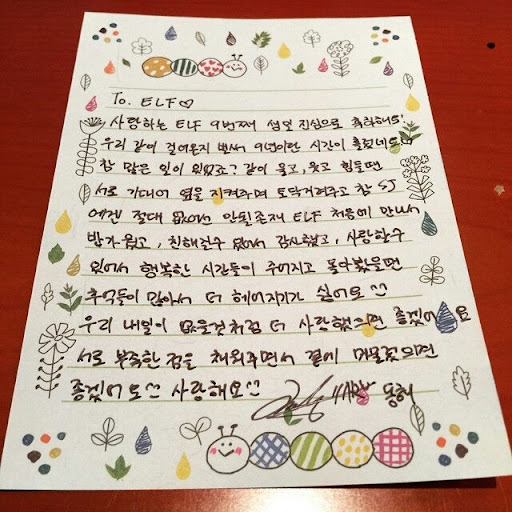 To. ELF♡
사랑하는 ELF 9번째 생일 진심으로 축하해요!
우리 같이 걸어온지 벌써 9년이란 시간이 흘렀네요
참 많은 일이 있었죠? 같이 울고, 웃고 힘들면
서로 기대어 옆을 지켜주며 토닥거려주고 참 SJ
에겐 절대 없어선 안될존재 ELF 처음에 만나서
반가웠고, 친해질수 있어서 감사했고, 사랑할수
있어서 행복한 시간들이 주어지고 돌아봤을땐
추억들이 많아서 더 헤어지기가 싫어요
우리 내일이 없을것처럼 더 사랑했으면 좋겠어요
서로 부족한 점을 채워주면서 곁에 머물렀으면
좋겠어요 사랑해요
동해